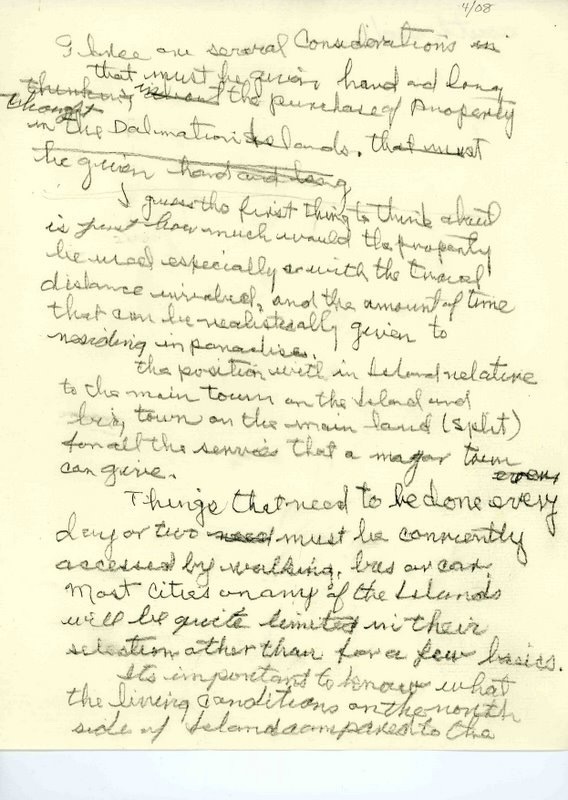 4/08
There are several Considerations in
that must be given hard and long
thinking about the purchase of A property
thought
in the Dalmation Islands. that must
be given hard and long
I guess the first thing to think about
is just how much would the property
be used especially or with the travel
distance involved, and the amount of time
that can be realistically given to
residing in paradise.
the position with in Island relative
to the main town on the Island and
big town on the main land (Split)
for all the services that a magor town
can give.
even
Things that need to be done every
day or two need must be conviently
accessed by walking, bus or car.
Most cities on any of the Islands
will be quite limited in their
selection other than for a few basics.
Its important to know what
the living conditions on the north
side of Island compared to the